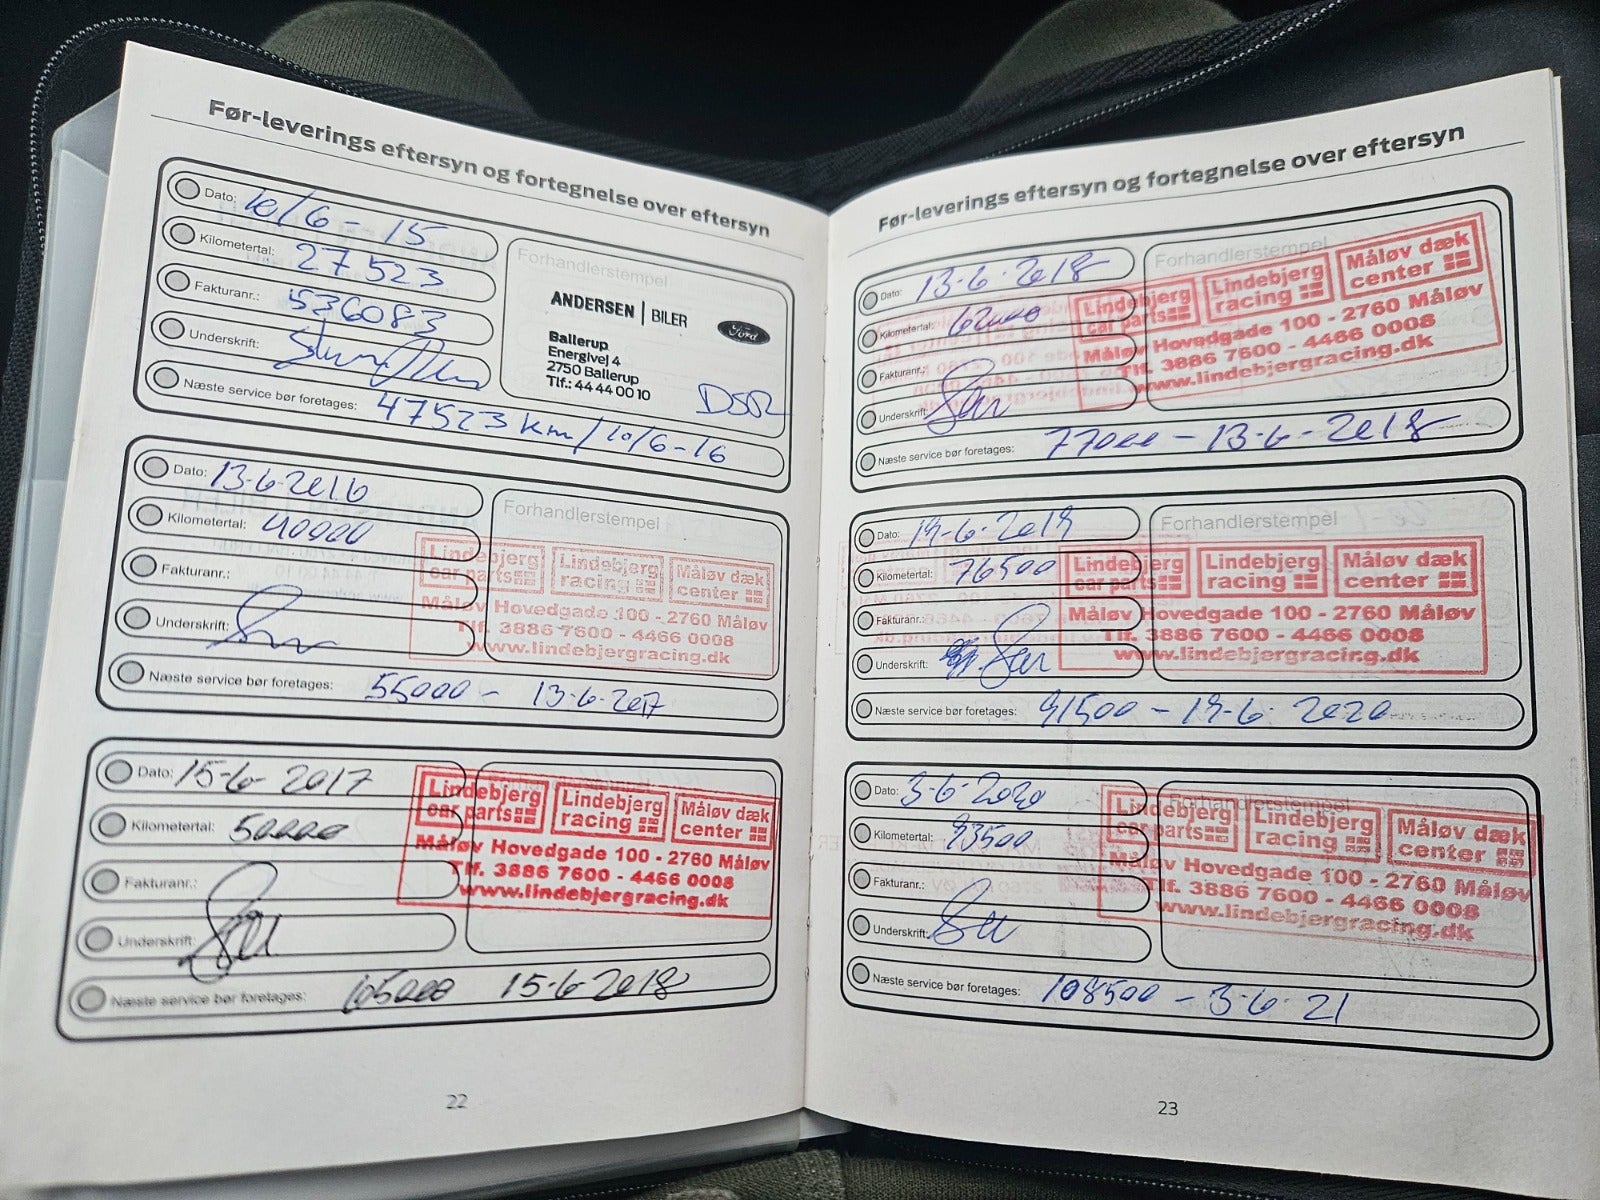 Før-leverings eftersyn og fortegnelse over eftersyn
Dato: 10/6 - 15
Kilometertal: 27523
Fakturanr.: 536083
Underskrift:
Næste service bør foretages: 47523 km/10/6-16
Forhandlerstempel
ANDERSEN | BILER
Ford
Ballerup
Energivej 4
2750 Ballerup
Tlf.: 44 44 00 10
Dato: 13-6-2016
Kilometertal: 40000
Fakturanr.:
Underskrift:
Næste service bør foretages: 55000 - 13-6-2017
Forhandlerstempel
Lindebjerg car parts
Lindebjerg racing
Måløv dæk center
Måløv Hovedgade 100 - 2760 Måløv
Tlf. 3886 7600 - 4466 0008
www.lindebjergracing.dk
Dato: 15-6-2017
Kilometertal: 50000
Fakturanr.:
Underskrift:
Næste service bør foretages: 15-6-2018
Lindebjerg car parts
Lindebjerg racing
Måløv dæk center
Måløv Hovedgade 100 - 2760 Måløv
Tlf. 3886 7600 - 4466 0008
www.lindebjergracing.dk
22
Før-leverings eftersyn og fortegnelse over eftersyn
Dato: 13-6-2018
Kilometertal: 62000
Fakturanr.:
Underskrift:
Næste service bør foretages: 77000 - 13-6-2018
Forhandlerstempel
Lindebjerg car parts
Lindebjerg racing
Måløv dæk center
Måløv Hovedgade 100 - 2760 Måløv
Tlf. 3886 7600 - 4466 0008
www.lindebjergracing.dk
Dato: 19-6-2019
Kilometertal: 76500
Fakturanr.:
Underskrift:
Næste service bør foretages: 91500 - 19-6-2020
Forhandlerstempel
Lindebjerg car parts
Lindebjerg racing
Måløv dæk center
Måløv Hovedgade 100 - 2760 Måløv
Tlf. 3886 7600 - 4466 0008
www.lindebjergracing.dk
Dato: 3-6-2020
Kilometertal: 93500
Fakturanr.:
Underskrift:
Næste service bør foretages: 108500 - 3-6-21
Forhandlerstempel
Lindebjerg car parts
Lindebjerg racing
Måløv dæk center
Måløv Hovedgade 100 - 2760 Måløv
Tlf. 3886 7600 - 4466 0008
www.lindebjergracing.dk
23